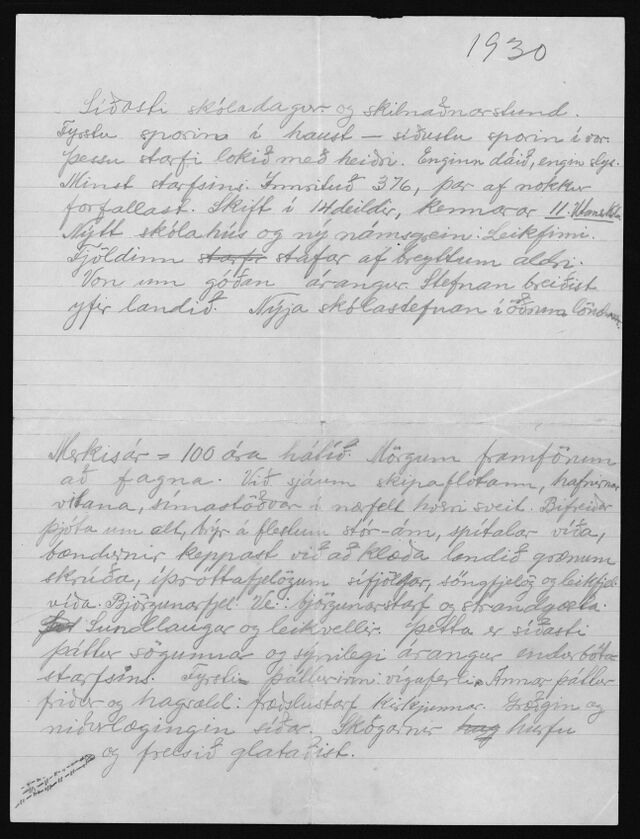 1930
Síðasti skóladagur og skilnaðarstund.
Fyrstu sporin í haust – síðustu sporin í vor
Þessu starfi lokið með heiðri. Enginn dáið, engin slys.
Minst starfsins. Innrituð 376, þar af nokkur
forfallast. Skift í 14 deildir, kennarar 11.
Nýtt skólahús og ný námsgrein: Leikfimi.
Fjöldinn starfir stafar af breyttum aldri.
Von um góðan árangur. Stefnan breiðist
yfir landið. Nýja skólastefnan í öðrum löndum.
Merkisár = 100 ára hátíð. Mörgum framförum
að fagna. Við sjáum skipaflotann, hafnirnar
vitana, símastöðvar í nærfelt hverri sveit. Bifreiðar
þjóta um alt, brýr á flestum stór-ám, spítalar víða,
bændurnir keppast við að klæða landið grænum
skrúða, íþróttafjelögum sífjölgar, söngfjelög og leikfjel.
víða. Björgunarfjel. Ve. björgunarstarf og strandgæsla.
Sundlaugar og leikvellir. Þetta er síðasti
þáttur sögunnar og sýnilegi árangur endurbóta
starfsins. Fyrsti þátturinn: vígaferli. Annar þáttur
friður og hagsæld: fræðslustarf kirkjunnar. Græðgin og
niðurlægingin síðar. Skógarnir hurfu
og frelsið glataðist.